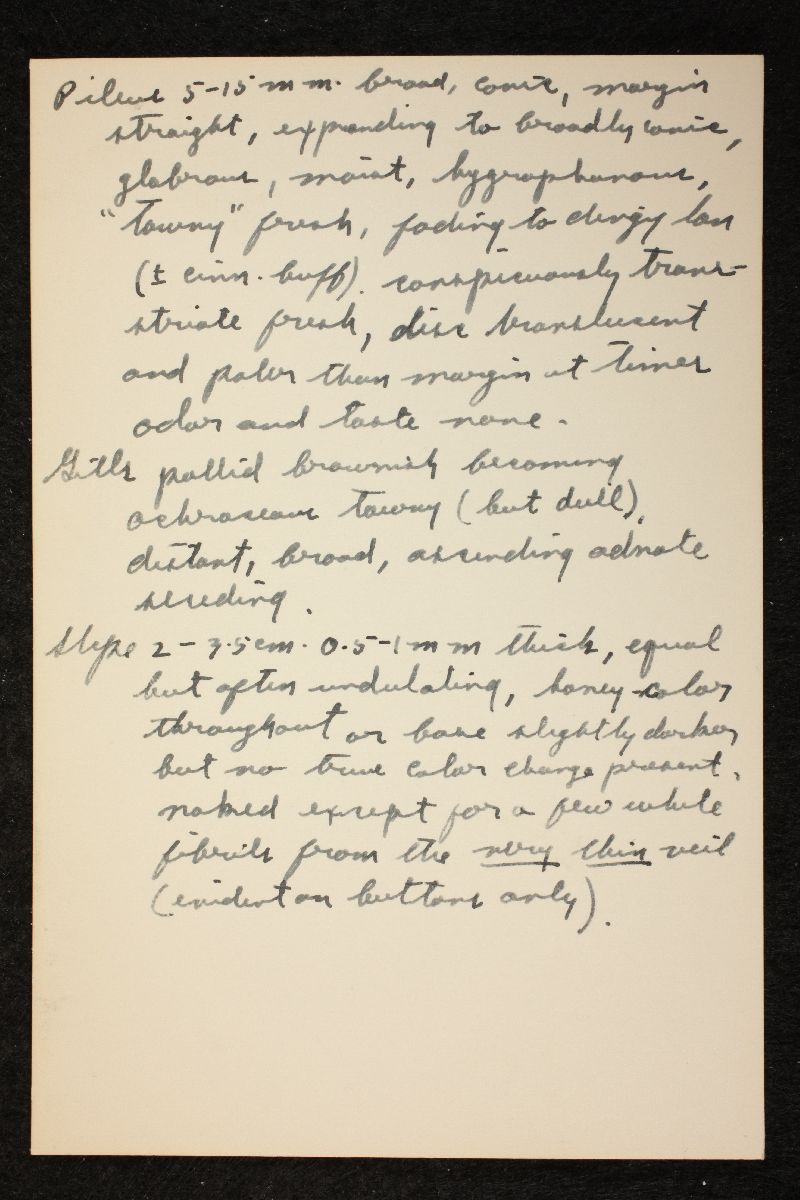 Pileus 5-15 mm. broad, conic, margin
straight, expanding to broadly conic,
glabrous, moist, hygrophanous,
"tawny" fresh, fading to dingy tan
(± cinn. buff). conspicuously trans-
striate fresh, disc translucent
and paler than margin at times
odor and taste none.
Gills pallid brownish becoming
ochraceous tawny (but dull),
distant, broad, ascending adnate
seceding.
Stipe 2-3.5 cm. 0.5-1 mm thick, equal
but often undulating, honey-color
throughout or base slightly darker
but no true color change present,
naked except for a few white
fibrils from the very thin veil
(evident on buttons only).